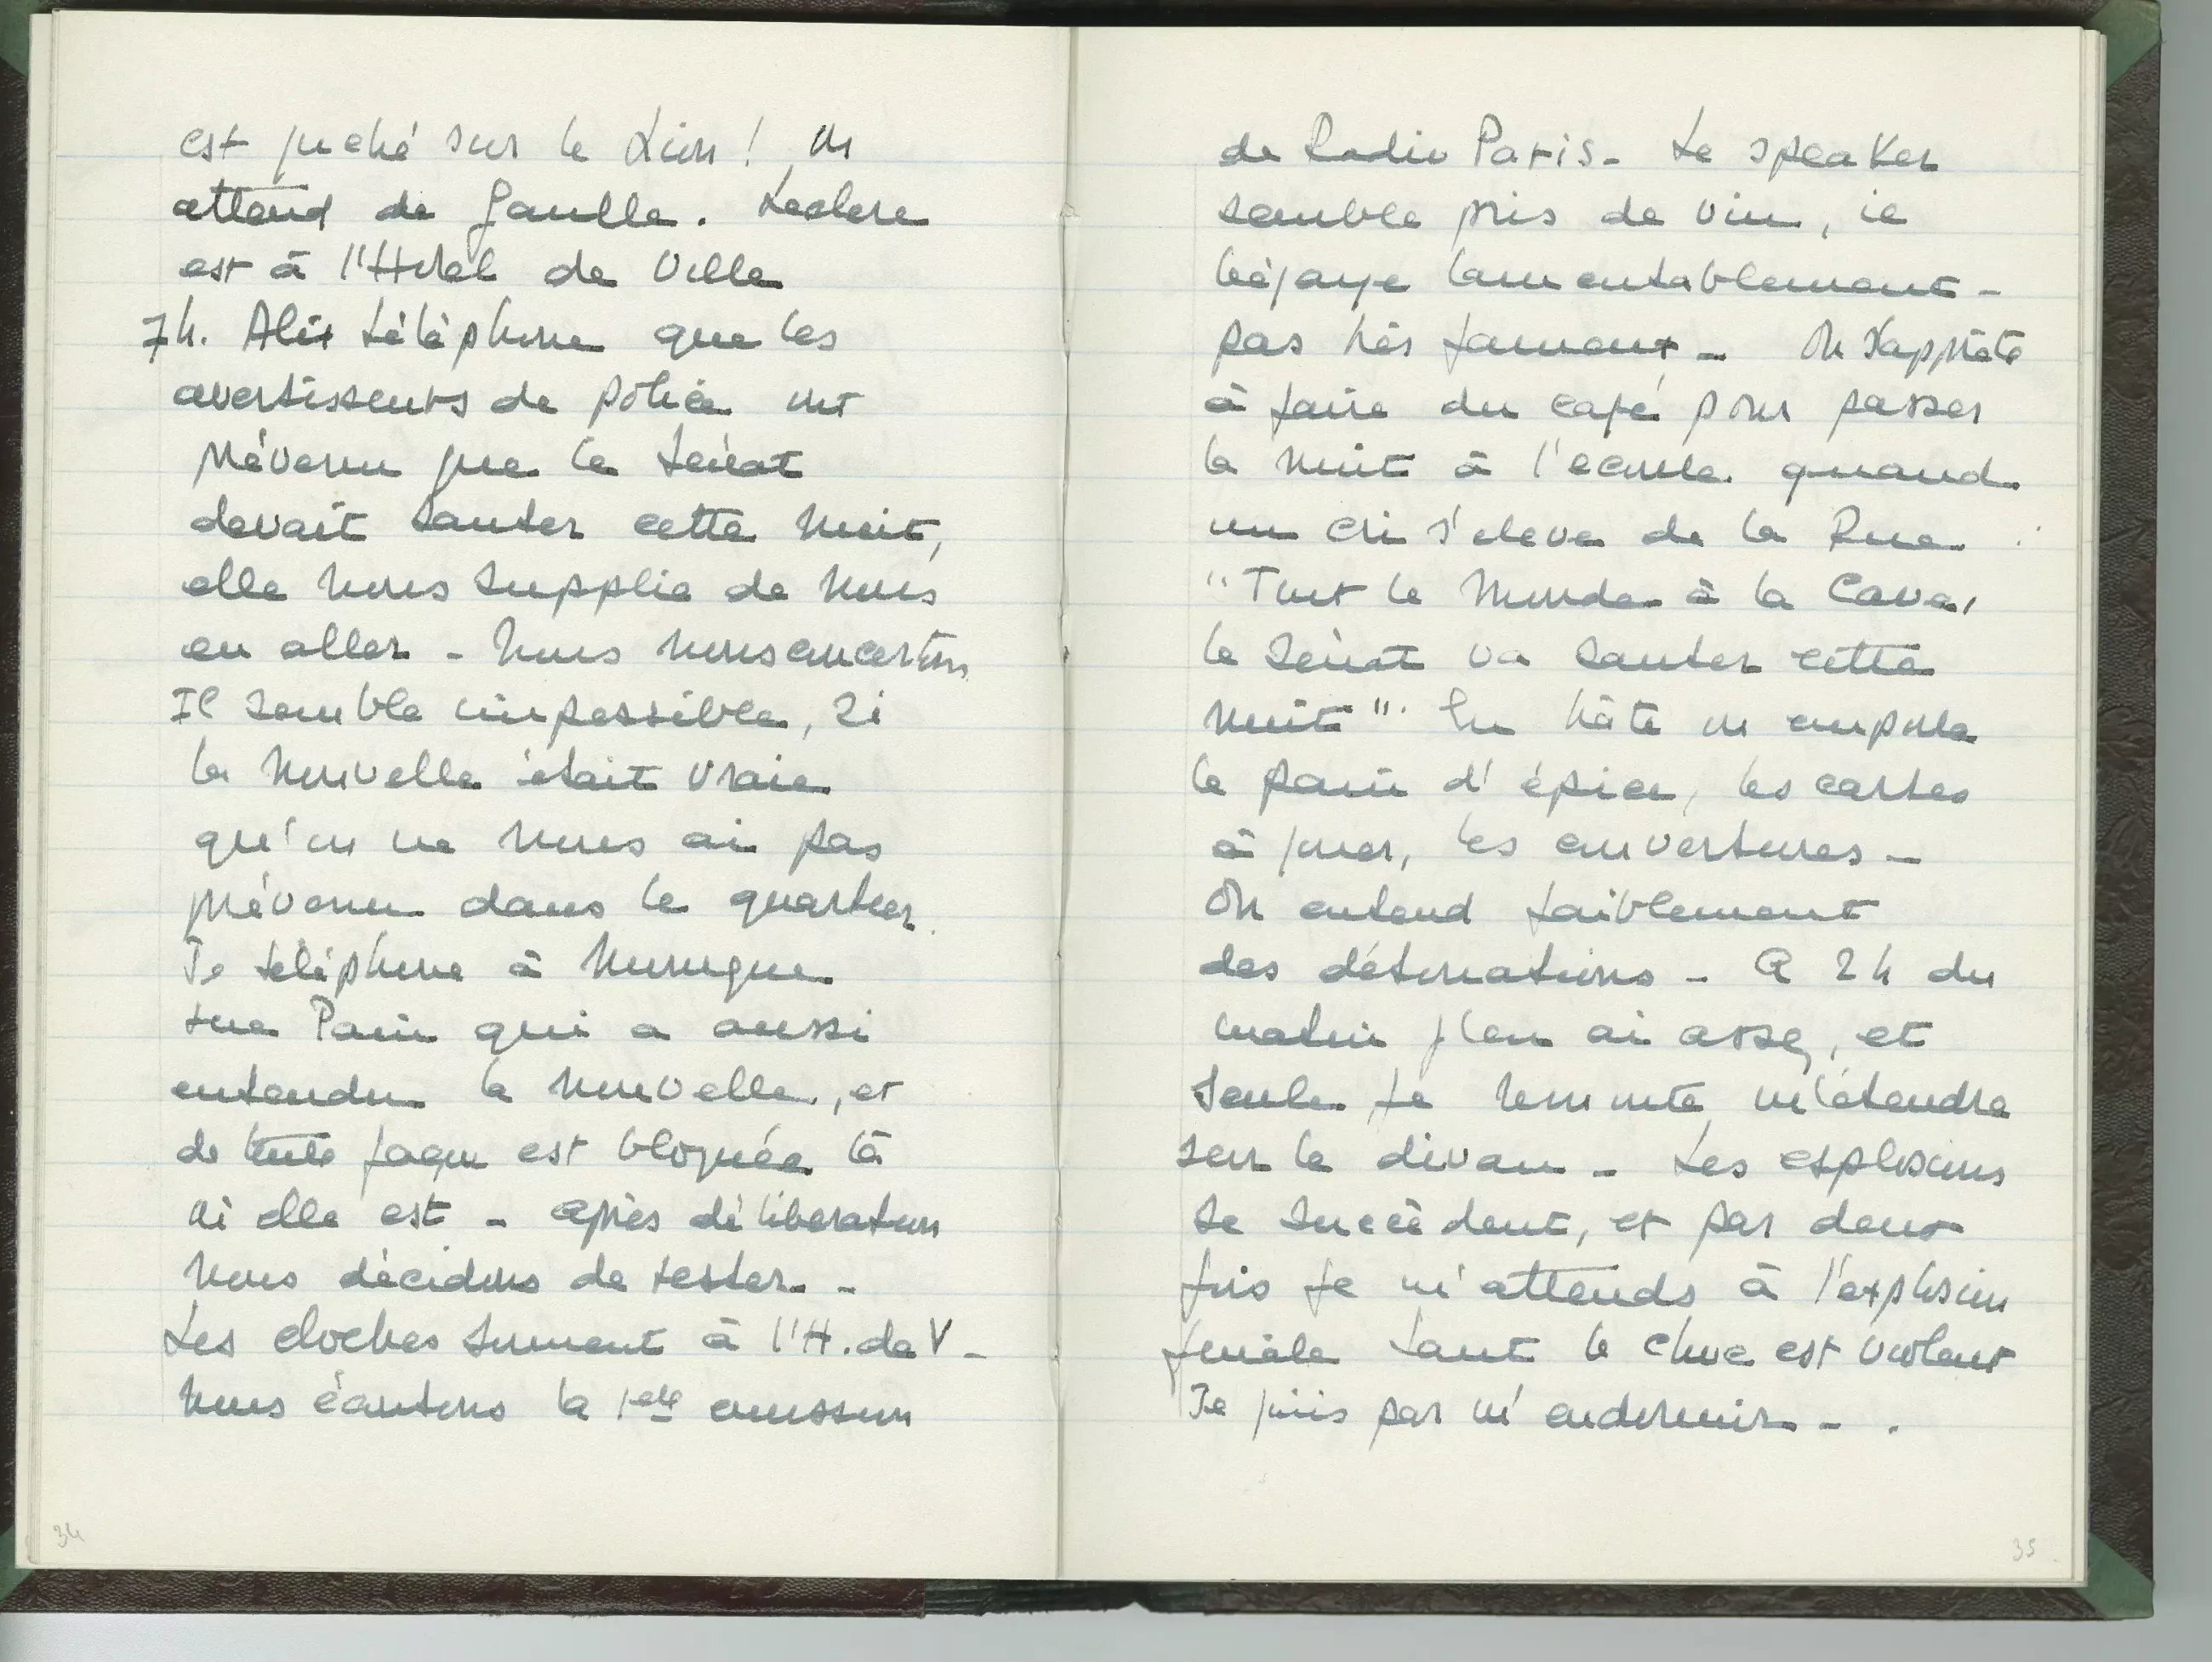 est juché sur le Lion ! on
attend de Gaulle. Leclerc
est à l'Hotel de Ville
7h. Alix téléphone que les
avertisseurs de police ont
prévenu que le Sénat
devait sauter cette nuit,
elle nous supplie de nous
en aller - Nous nous concertons
Il semble impossible, si
la nouvelle était vraie
qu'on ne nous ai pas
prévenu dans le quartier.
Je téléphone à Monique
rue Pain qui a aussi
entendu la nouvelle, et
de toute façon est bloquée là
où elle est - après délibération
nous décidons de rester. -
Les cloches sonnent à l'H. de V -
nous écoutons la 1ere emission
34
de Radio Paris - Le speaker
semble pris de vin, il
bégaye lamentablement -
pas très fameux - On s'apprête
à faire du café pour passer
la nuit à l'ecoute quand
un cri s'eleve de la Rue
"Tout le monde à la Cave,
le Sénat va sauter cette
nuit". En hâte on emporte
le pain d'épice, les cartes
à jouer, les couvertures -
On entend faiblement
des détonations - A 2h du
matin j'en ai assez, et
seule je remonte m'étendre
sur le divan - Les explosions
se succèdent, et par deux
fois je m'attends à l'explosion
finale tant le choc est violent
Je finis par m'endormir - .
35